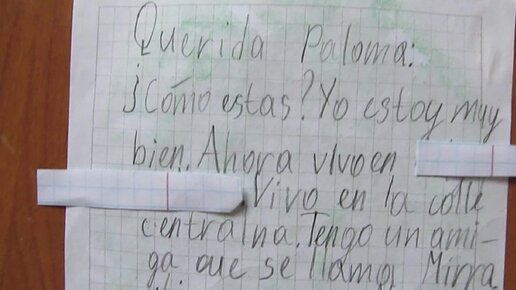 Querida Paloma:
¡Cómo estas? Yo estoy muy
bien. Ahora vivo en
Vivo en la calle
centralna. Tengo un ami-
ga, que se llama Mirra